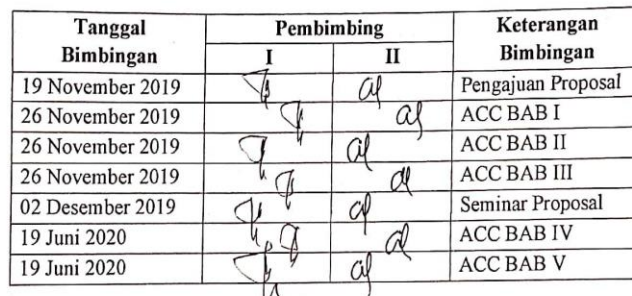 Tanggal Bimbingan Pembimbing Keterangan Bimbingan
I II
19 November 2019 Pengajuan Proposal
26 November 2019 ACC BAB I
26 November 2019 ACC BAB II
26 November 2019 ACC BAB III
02 Desember 2019 Seminar Proposal
19 Juni 2020 ACC BAB IV
19 Juni 2020 ACC BAB V